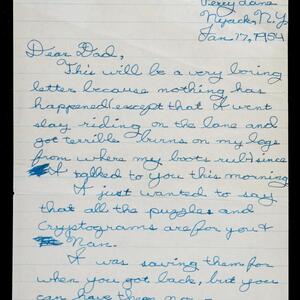 Perry Lane
Nyack, N.Y.
Jan. 17, 1954
Dear Dad,
This will be a very boring
letter because nothing has
happened except that I went
slay riding on the lane and
got terrible burns on my legs
from where my boots rub since
I talked to you this morning
I just wanted to say
that all the puzzles and
Cryptograms are for you &
Nan.
I was saving them for
when you got back, but you
can have them now -